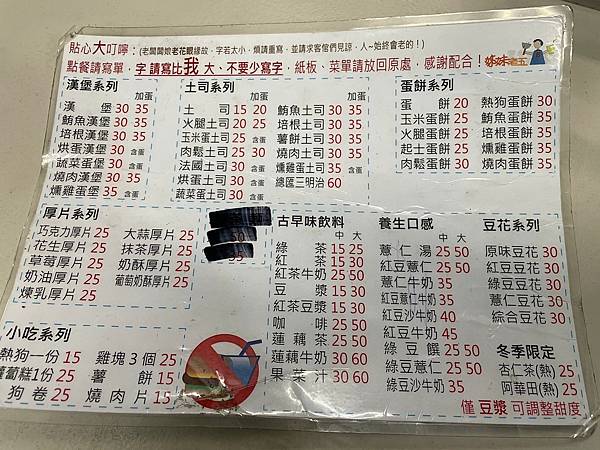 貼心大叮嚀：(老闆闆娘老花眼緣故，字若太小，煩請重寫，並請求客倌們見諒，人~始終會老的！)
點餐請寫單，字 請寫比我 大、不要少寫字，紙板、菜單請放回原處，感謝配合！姊妹老五
漢堡系列
加蛋
漢堡 30 35
鮪魚漢堡 30 35
培根漢堡 30 35
烘蛋漢堡 30 含蛋
蔬菜蛋堡 30 含蛋
燒肉漢堡 30 35
燻雞蛋堡 35 含蛋
土司系列
加蛋
土司 15 20
火腿土司 20 25
玉米蛋土司 25 含蛋
肉鬆土司 25 30
法國土司 30 含蛋
烘蛋土司 30 含蛋
蔬菜蛋土司 30 含蛋
加蛋
鮪魚土司 30 35
培根土司 30 35
薯餅土司 30 35
燒肉土司 30 35
燻雞蛋土司 35 含蛋
總匯三明治 60
蛋餅系列
蛋餅 20
玉米蛋餅 25
火腿蛋餅 25
起士蛋餅 25
肉鬆蛋餅 30
熱狗蛋餅 30
鮪魚蛋餅 35
培根蛋餅 35
薯餅蛋餅 35
燒肉蛋餅 35
厚片系列
巧克力厚片 25
花生厚片 25
草莓厚片 25
奶油厚片 25
煉乳厚片 25
大蒜厚片 25
抹茶厚片 25
奶酥厚片 25
葡萄奶酥厚片 25
30
35
小吃系列
熱狗一份 15
蘿蔔糕1份 25
狗卷 25
雞塊3個 25
薯餅 15
燒肉片 15
古早味飲料
中 大
綠茶 15 25
紅茶 15 30
紅茶牛奶 25 50
豆漿 15 30
紅茶豆漿 15 30
咖啡 25 50
蓮藕茶 25 50
蓮藕牛奶 30 60
果菜汁 30 60
養生口感
中 大
薏仁湯 25 50
紅豆薏仁 25 50
薏仁牛奶 35
紅豆薏仁牛奶 35
紅豆沙牛奶 40
紅豆牛奶 45
綠豆饌 25 50
綠豆薏仁 25 50
綠豆沙牛奶 35
豆花系列
原味豆花 30
紅豆豆花 30
綠豆豆花 30
薏仁豆花 30
綜合豆花 30
冬季限定
杏仁茶(熱) 25
阿華田(熱) 25
僅 豆漿 可調整甜度